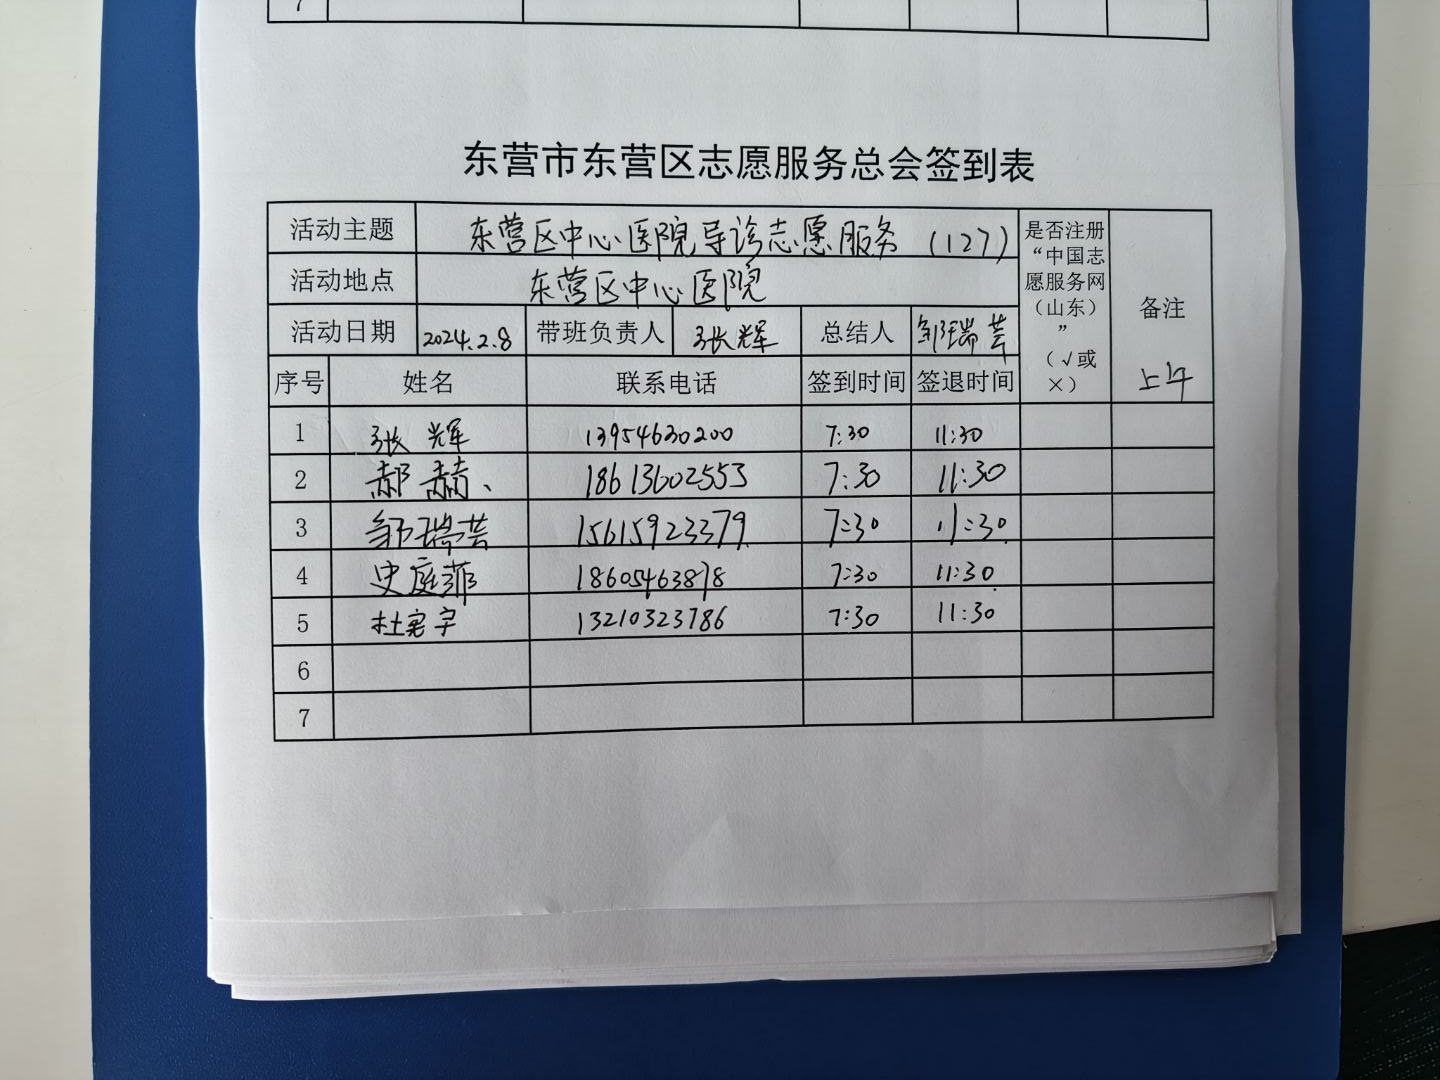 7
东营市东营区志愿服务总会签到表
活动主题 东营区中心医院导诊志愿服务（127） 是否注册“中国志愿服务网（山东）”（√或×） 备注 上午
活动地点 东营区中心医院
活动日期 2024.2.8 带班负责人 张辉 总结人 邹瑞芸
序号 姓名 联系电话 签到时间 签退时间
1 张辉 13954630200 7:30 11:30
2 郝赫、 18613602553 7:30 11:30
3 邹瑞芸 15615923379 7:30 11:30
4 史庭菲 18605463878 7:30 11:30
5 杜宪宇 13210323786 7:30 11:30
6
7